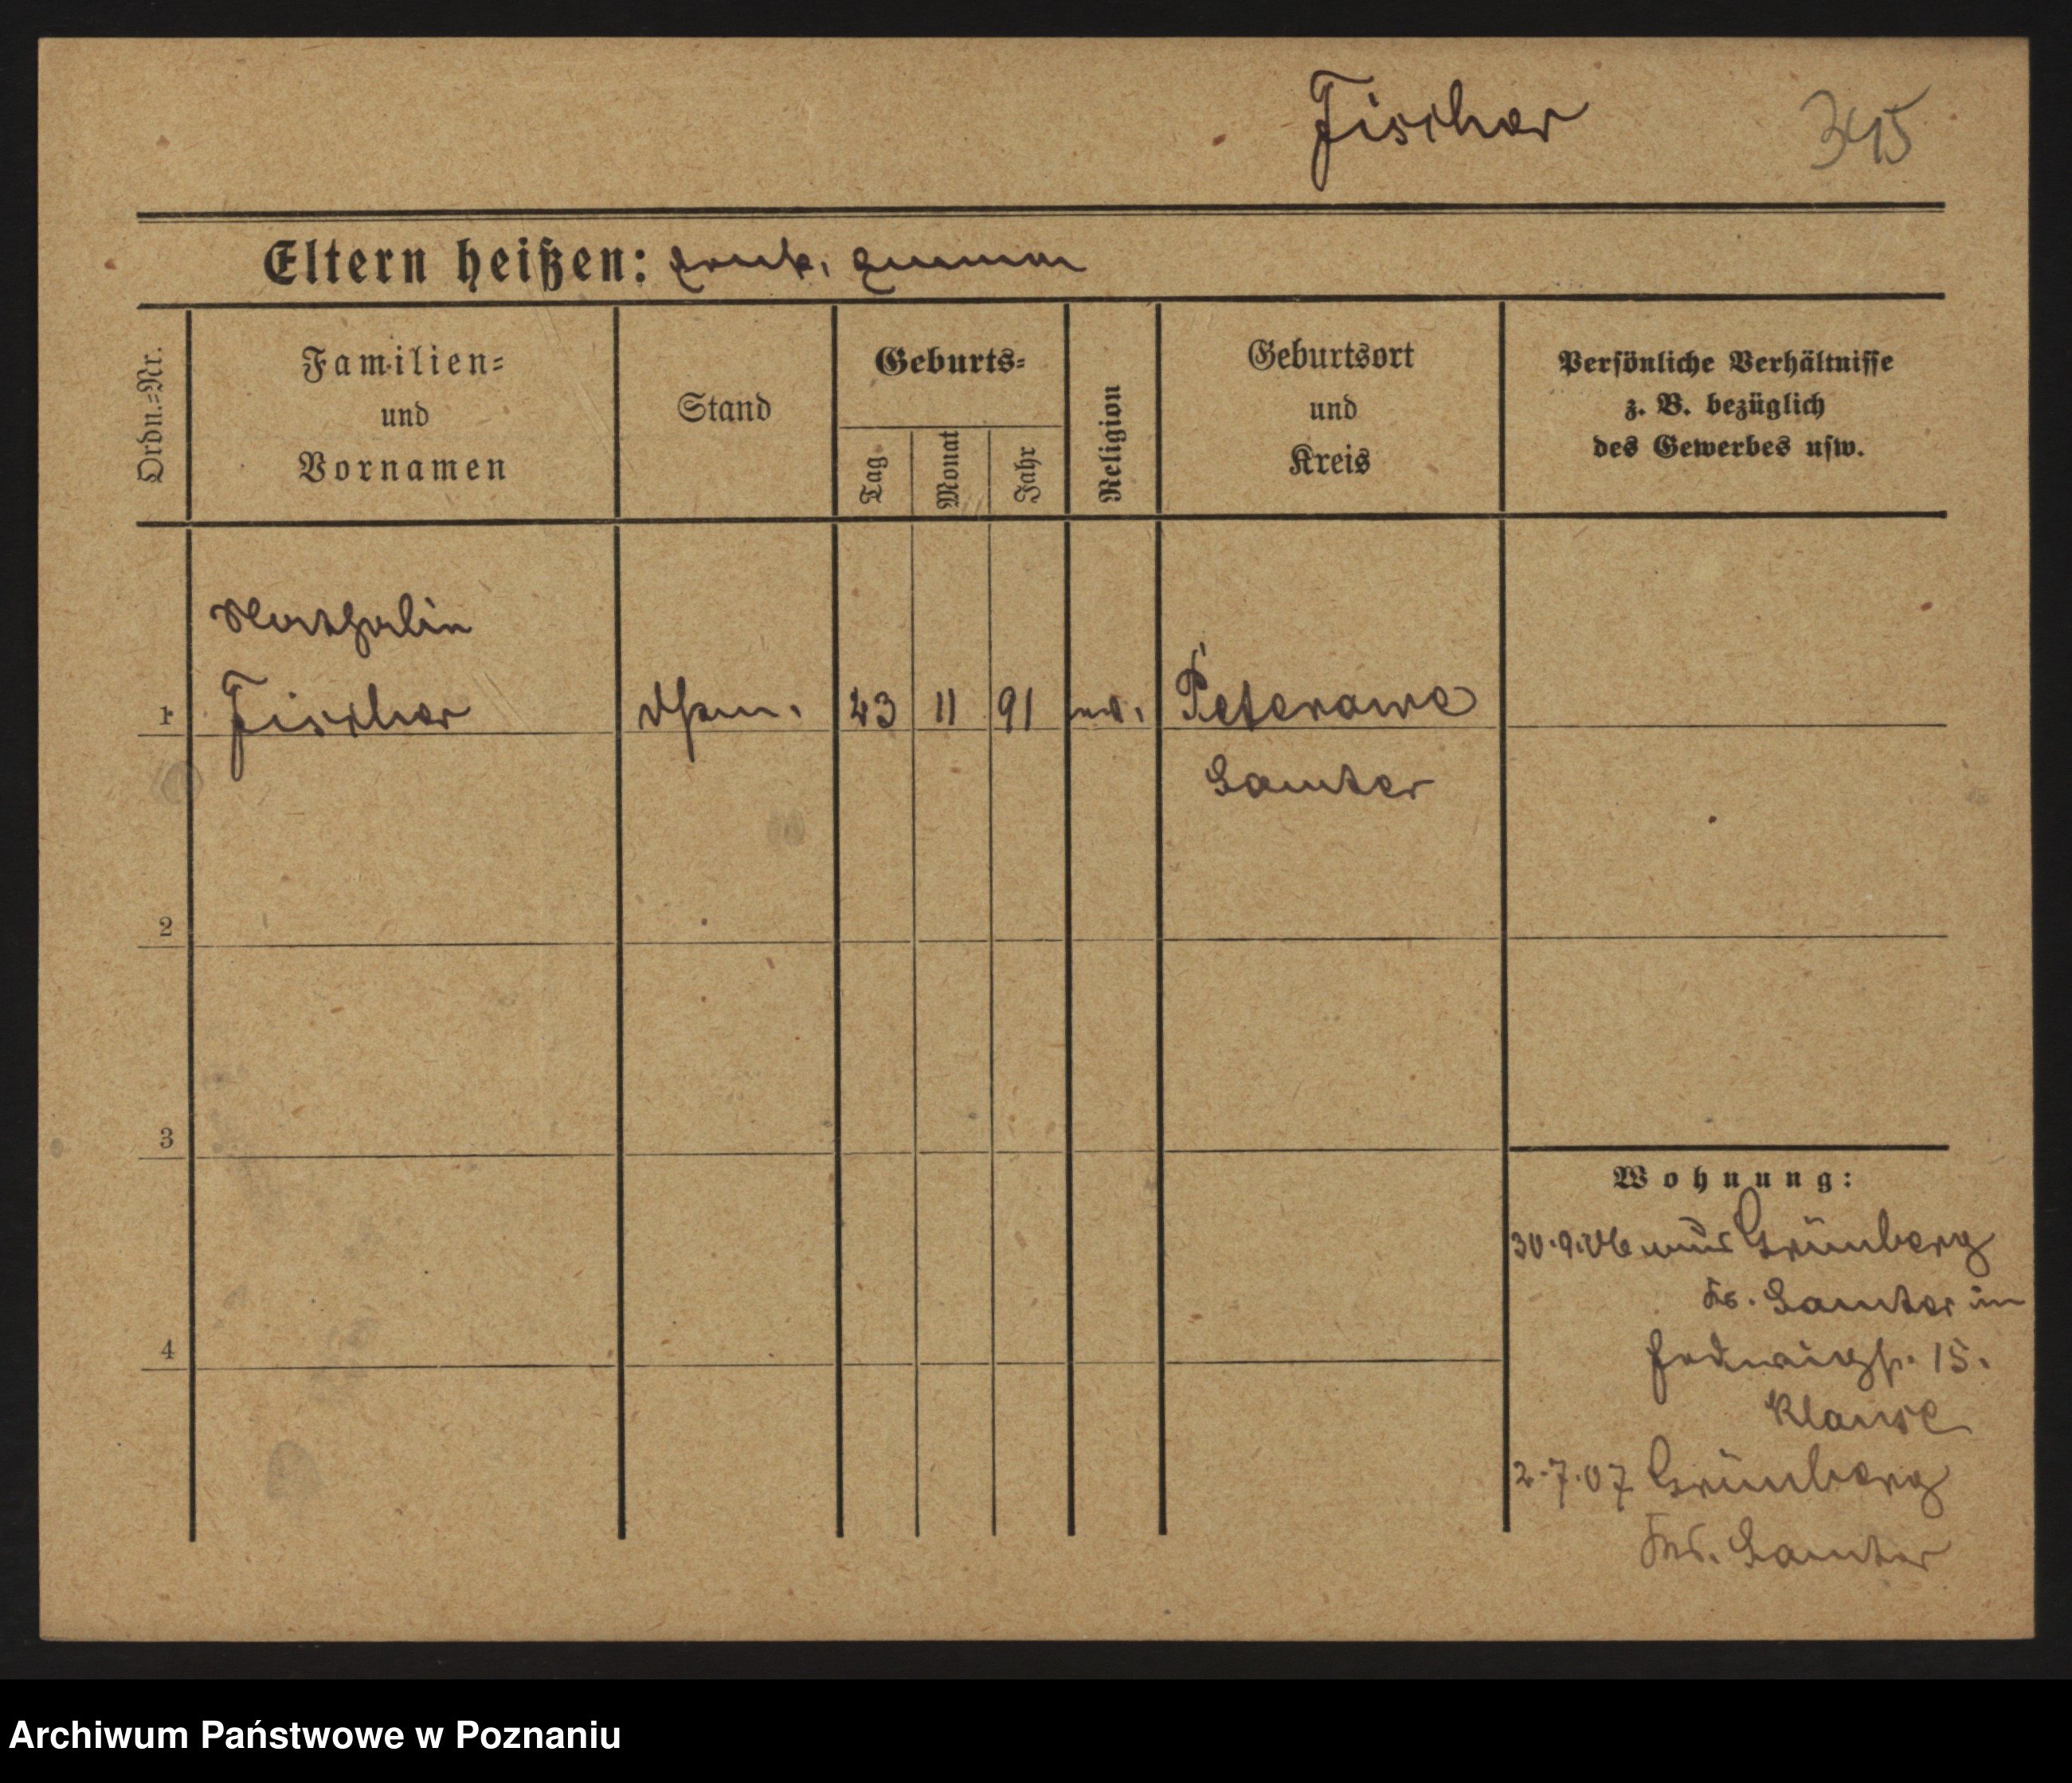 Fischer 345
Eltern heißen:
Ordn.=Nr.
Familien=
und
Vornamen
Stand
Geburts=
Tag
Monat
Jahr
Religion
Geburtsort
und
Kreis
Persönliche Verhältnisse
z. B. bezüglich
des Gewerbes usw.
1
Fischer
23 11 91
Peterawe
Samter
2
3
4
Wohnung:
30.9.06 aus Grünberg
Kr. Samter in
Hedwigstr. 15.
Klause
2.7.07 Grünberg
Krs. Samter
Archiwum Państwowe w Poznaniu